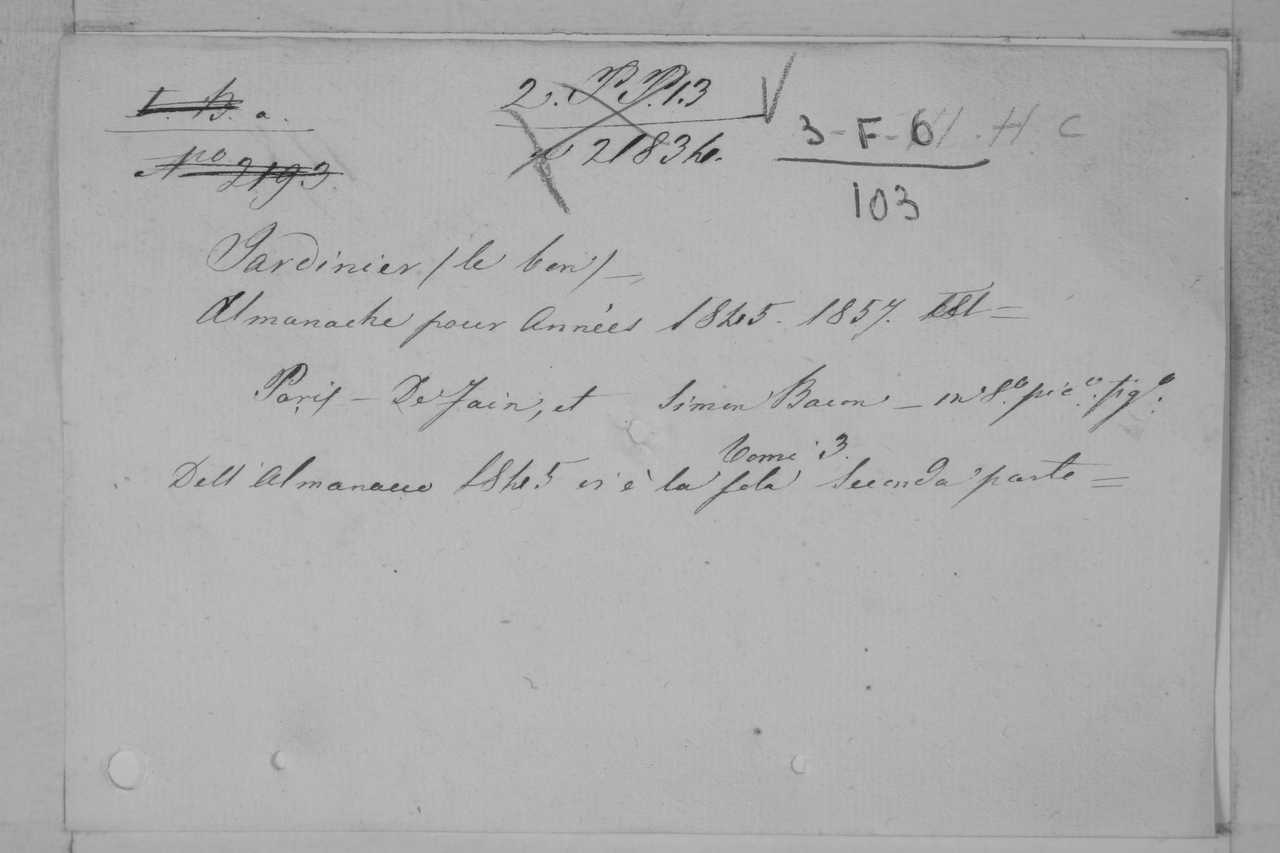 1. B. a.
No 2193.
2. PP. 1.3
2183 4.
3-F-6 H C
103
Jardinier (le bon) —
Almanache pour Années 1845. 1857. =
Paris — De Jain, et Simon Bacon — in 8.º pic.º fig.º
tome 3.
Dell'Almanacco 1845 vi è la sola Seconda parte =